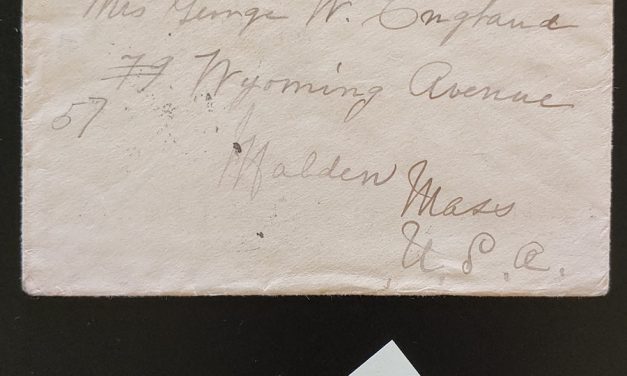 Mrs George W. England
79 Wyoming Avenue
57
Malden Mass
U.S.A.